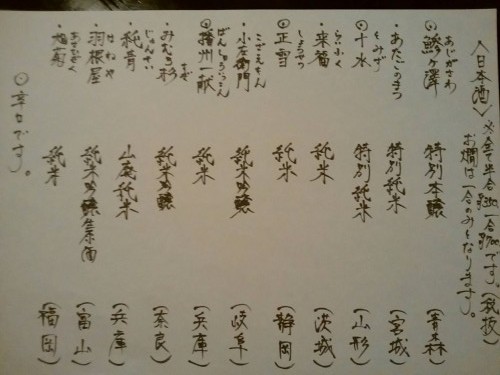 〈日本酒〉 ※全て半合 一合 です。(税抜)
お燗は一合のみとなります。
あじがさわ
◎鰺ヶ澤 特別本醸 (青森)
・あたごのまつ 特別純米 (宮城)
とみず
◎十水 特別純米 (山形)
らいふく
・来福 純米 (茨城)
しょうせつ
◎正雪 純米 (静岡)
こざえもん
・小左衛門 純米吟醸 (岐阜)
ばんしゅういっこん
◎播州一献 純米 (兵庫)
すぎ
・みむろ杉 純米吟醸 (奈良)
じゅんせい
・純青 山廃純米 (兵庫)
はねや
・羽根屋 純米吟醸生原酒 (富山)
・旭菊 純米 (福岡)
◎辛口です。